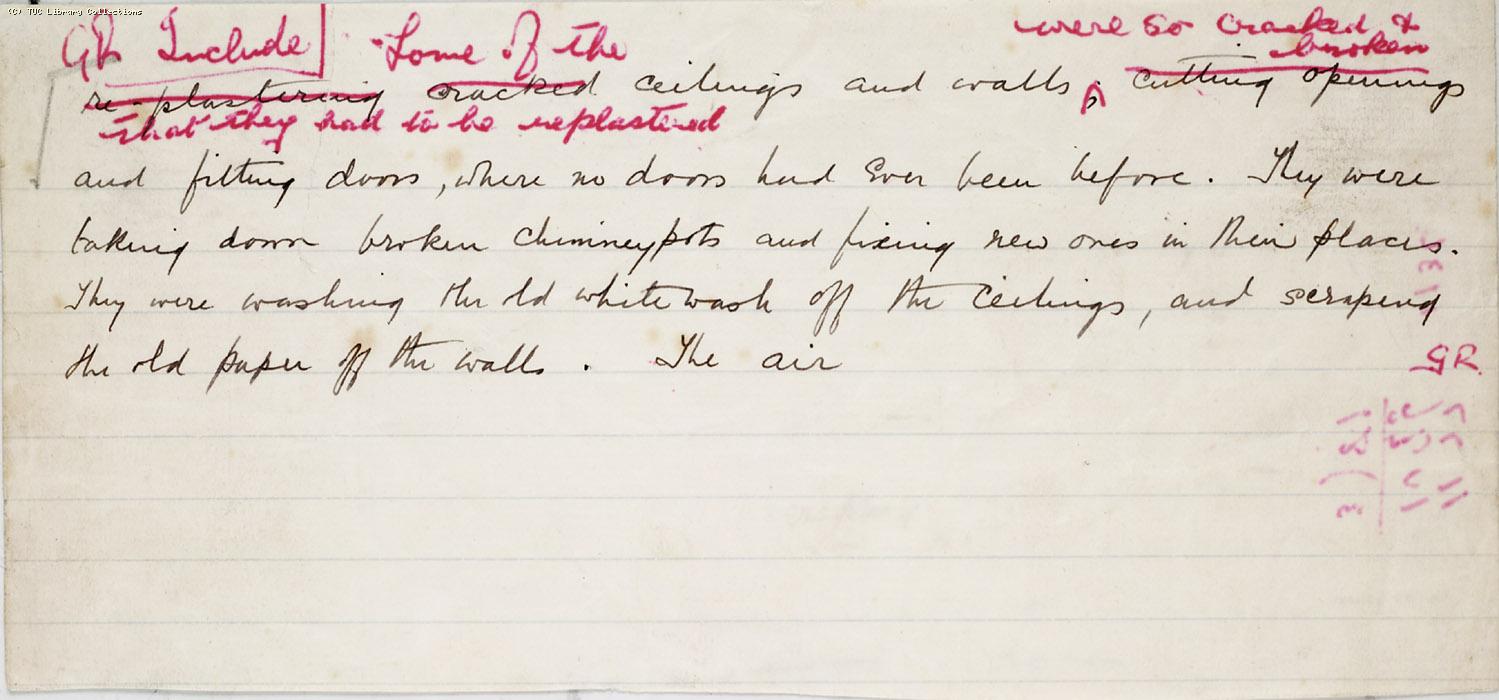 (C) TUC Library Collections
were so cracked &
GR Include Some of the broken
re-plastering cracked ceilings and walls, cutting openings
that they had to be replastered
and fitting doors, where no doors had ever been before. They were
taking down broken chimneypots and fixing new ones in their places.
They were washing the old whitewash off the ceilings, and scraping
the old paper off the walls. The air
GR.